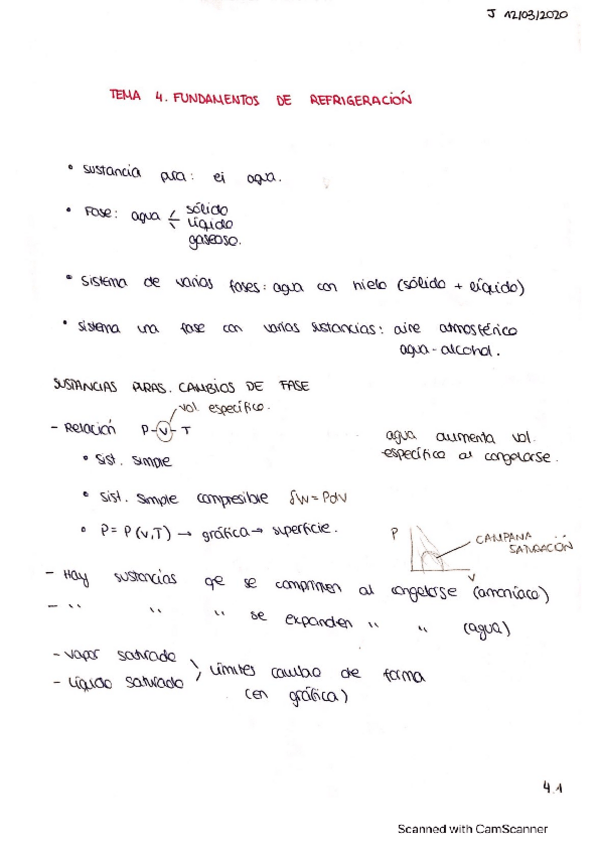 J 12/03/2020
TEMA 4. FUNDAMENTOS DE REFRIGERACIÓN
• Sustancia pura: ej agua.
• Fase: agua < sólido
líquido
gaseoso.
• Sistema de varias fases: agua con hielo (sólido + líquido)
• Sistema una fase con varias sustancias: aire atmosférico
agua-alcohol.
SUSTANCIAS PURAS. CAMBIOS DE FASE
vol. específico.
- Relación P-V-T
agua aumenta vol.
específico al congelarse.
• Sist. simple
• Sist. simple compresible δW = PdV
• P = P (V,T) → gráfica → superficie.
P
CAMPANA
SATURACIÓN
V
- Hay sustancias qe se comprimen al congelarse (amoníaco)
- " " " se expanden " " (agua)
- Vapor saturado
- Líquido saturado
límites cambio de forma
(en gráfica)
4.1
Scanned with CamScanner